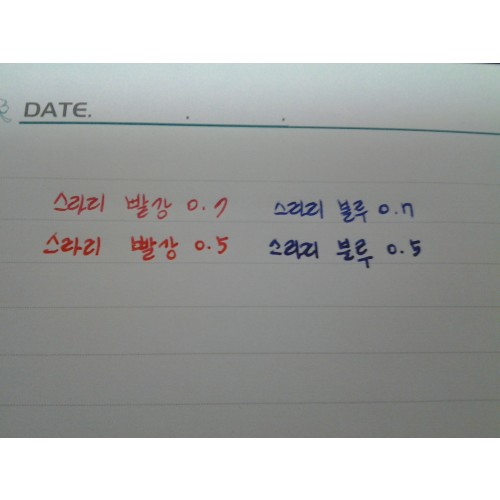 DATE.
스라리 빨강 0.7 스라리 블루 0.7
스라리 빨강 0.5 스라리 블루 0.5